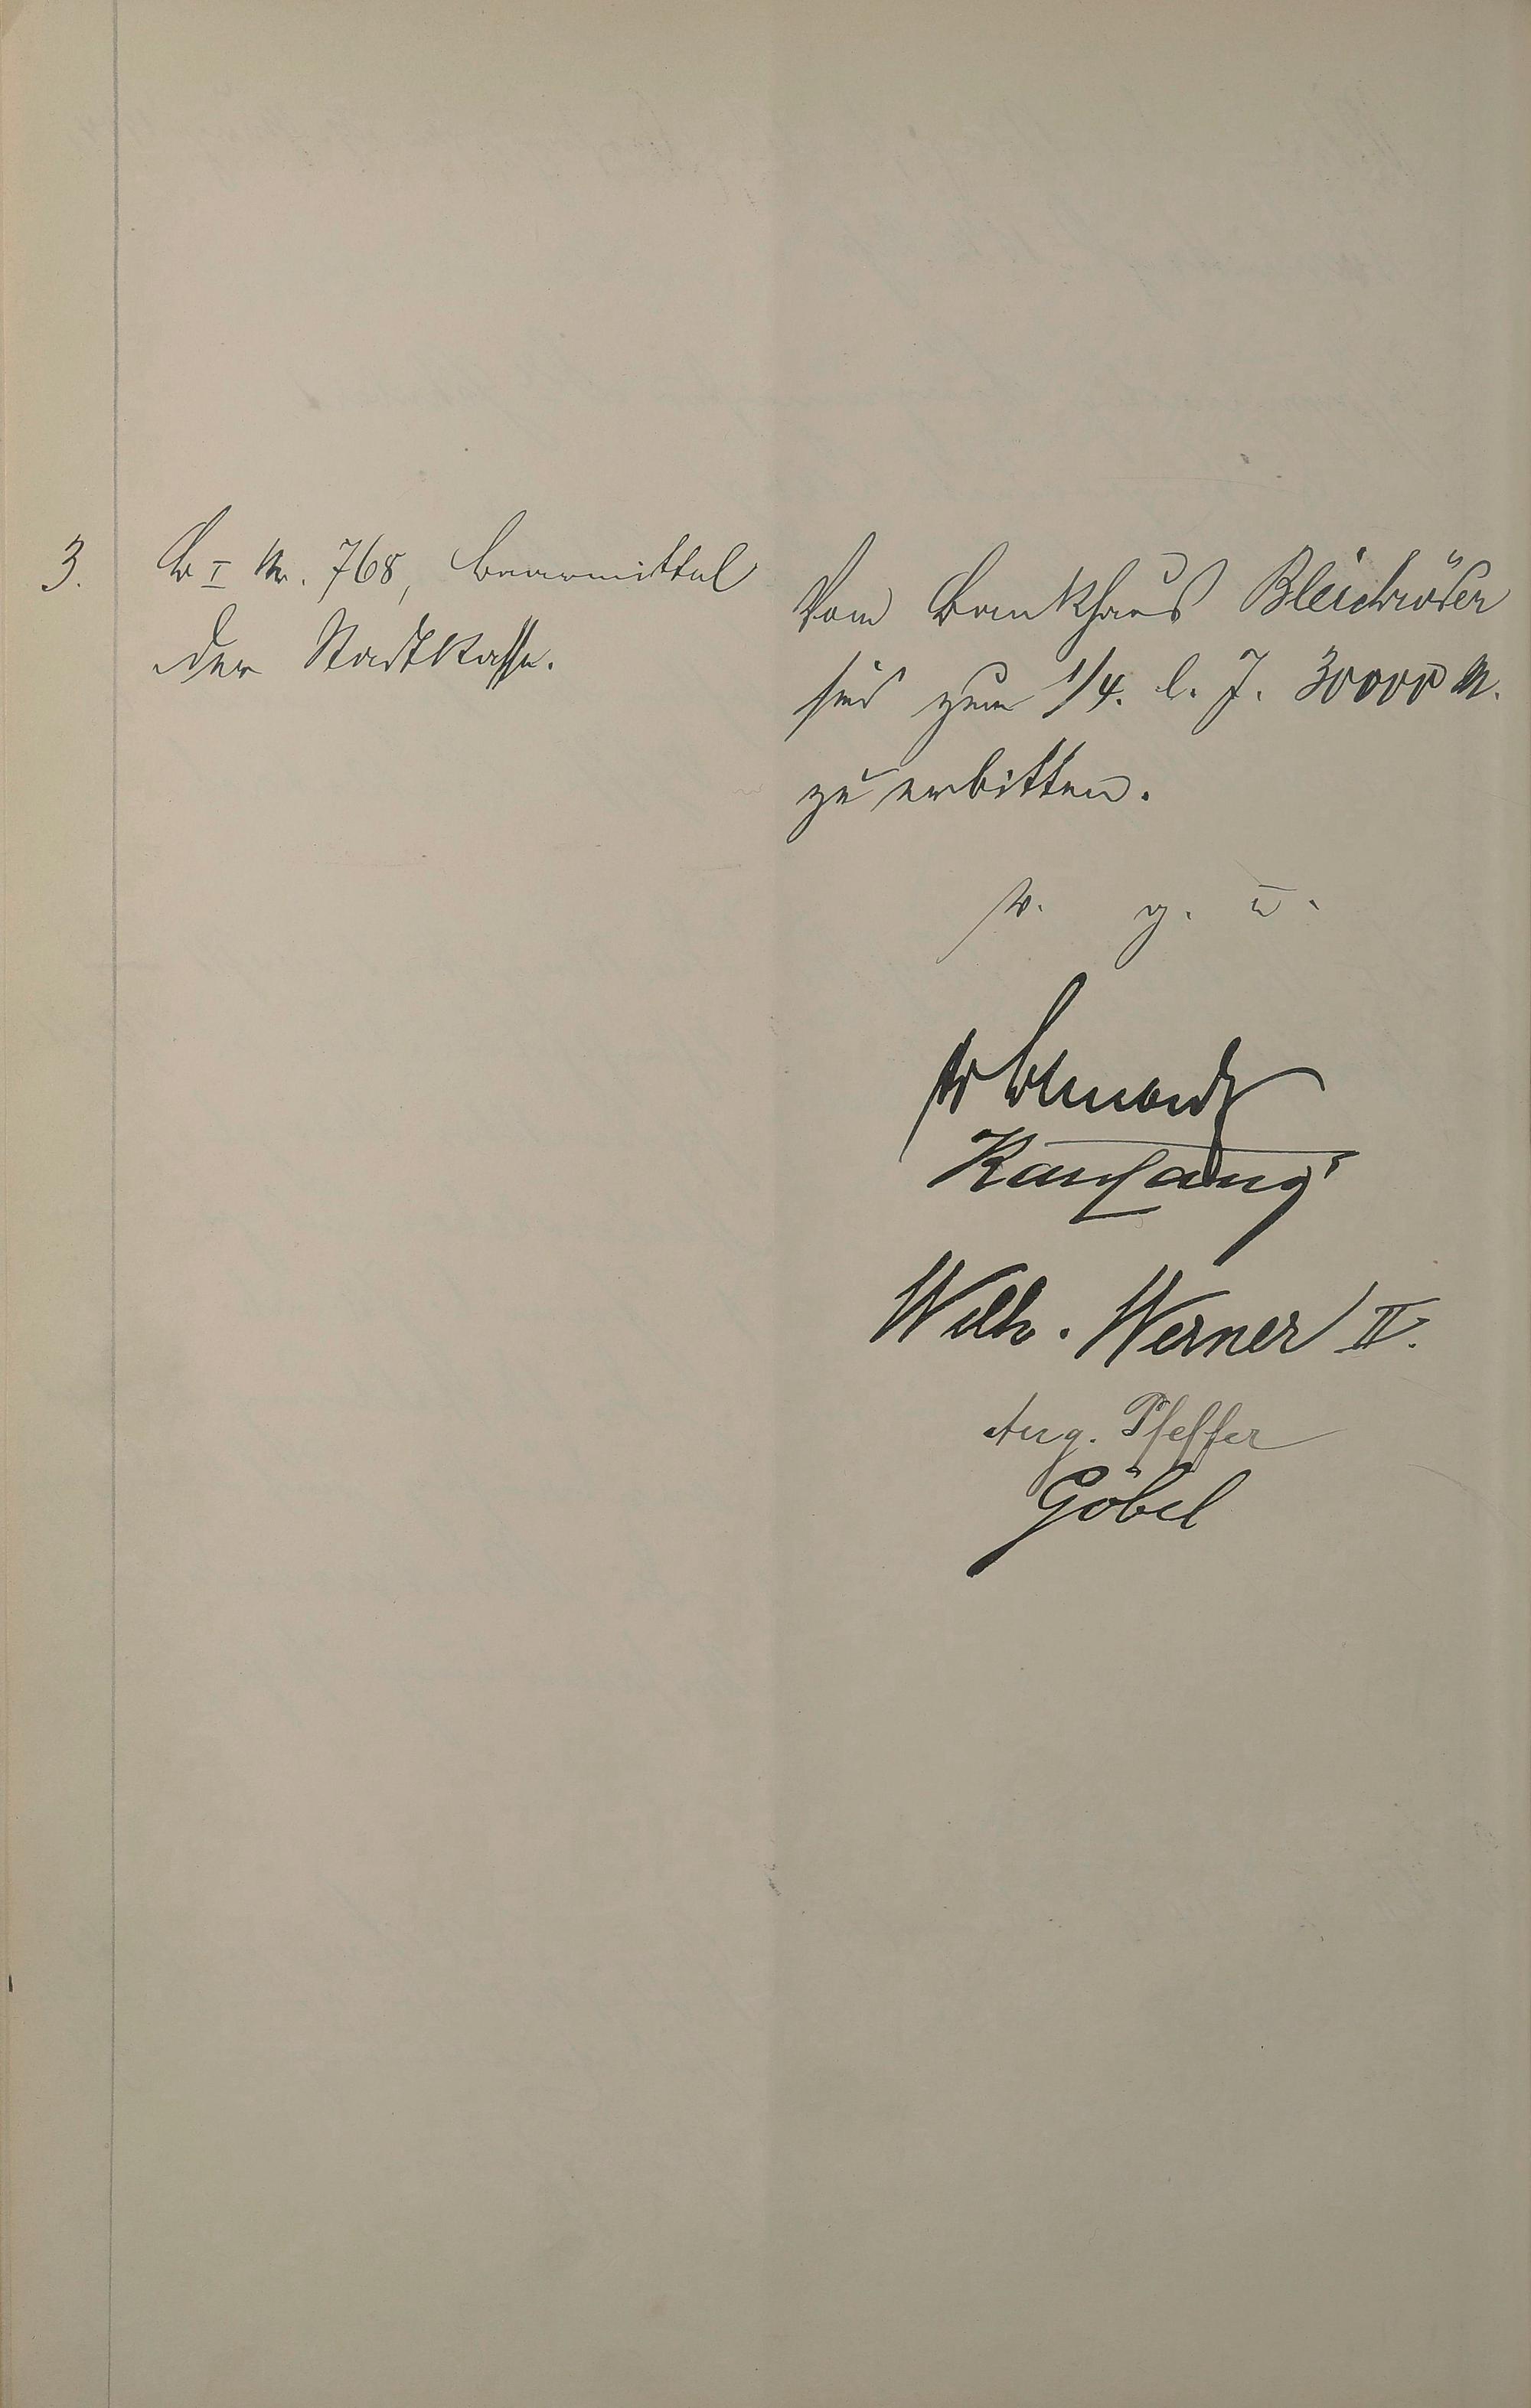 3.
B I Nr. 768, Baarmittel
der Stadtkasse.
Vom Bankhaus Bleichröder
sind zum 1/4. l. J. 30000 M.
zu erbitten.
v. g. u.
Wilh. Werner II.
Aug. Pfeffer
Göbel